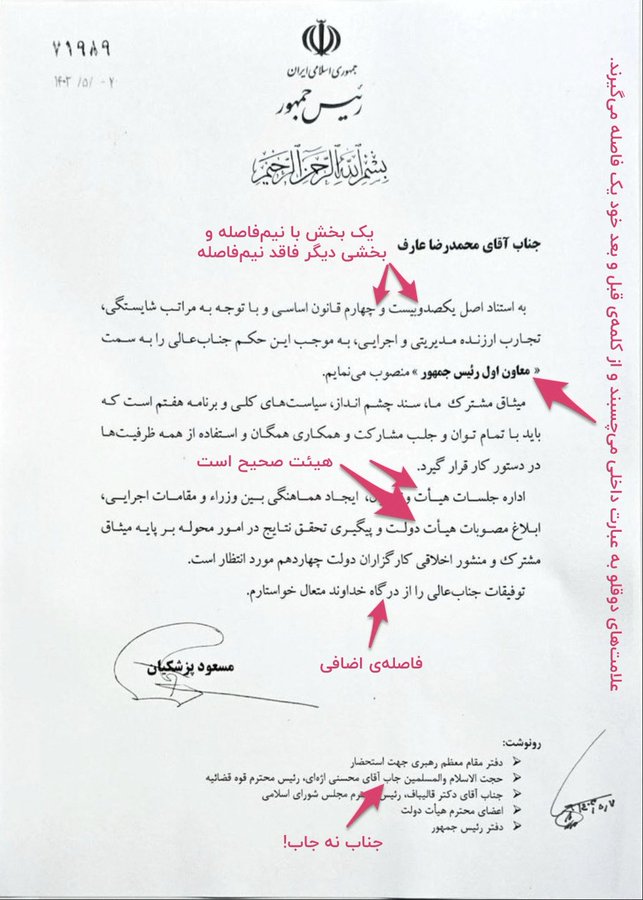 ۷۱۹۸۹
۱۴۰۳/۵/-۷
جمهوری اسلامی ایران
رئیس جمهور
بسم الله الرحمن الرحیم
جناب آقای محمدرضا عارف
یک بخش با نیم‌فاصله و
بخشی دیگر فاقد نیم‌فاصله
به استناد اصل یکصدوبیست و چهارم قانون اساسی و با توجه به مراتب شایستگی،
تجارب ارزنده مدیریتی و اجرایی، به موجب این حکم جناب‌عالی را به سمت
« معاون اول رئیس جمهور » منصوب می‌نمایم.
میثاق مشترک ما، سند چشم انداز، سیاست‌های کلی و برنامه هفتم است که
باید با تمام توان و جلب مشارکت و همکاری همگان و استفاده از همه ظرفیت‌ها
در دستور کار قرار گیرد.
هیئت صحیح است
اداره جلسات هیأت ایجاد هماهنگی بین وزراء و مقامات اجرایی،
ابلاغ مصوبات هیأت دولت و پیگیری تحقق نتایج در امور محوله بر پایه میثاق
مشترک و منشور اخلاقی کارگزاران دولت چهاردهم مورد انتظار است.
توفیقات جناب‌عالی را از در گاه خداوند متعال خواستارم.
فاصله‌ی اضافی
مسعود پزشکیان
رونوشت:
دفتر مقام معظم رهبری جهت استحضار
حجت الاسلام والمسلمین جاب آقای محسنی اژه‌ای، رئیس محترم قوه قضائیه
جناب آقای دکتر قالیباف، رئیس مجلس شورای اسلامی
اعضای محترم هیأت دولت
دفتر رئیس جمهور
جناب نه جاب!
علامت‌های دوقلو به عبارت داخلی می‌چسبند و از کلمه‌ی قبل و بعد خود یک فاصله می‌گیرند.